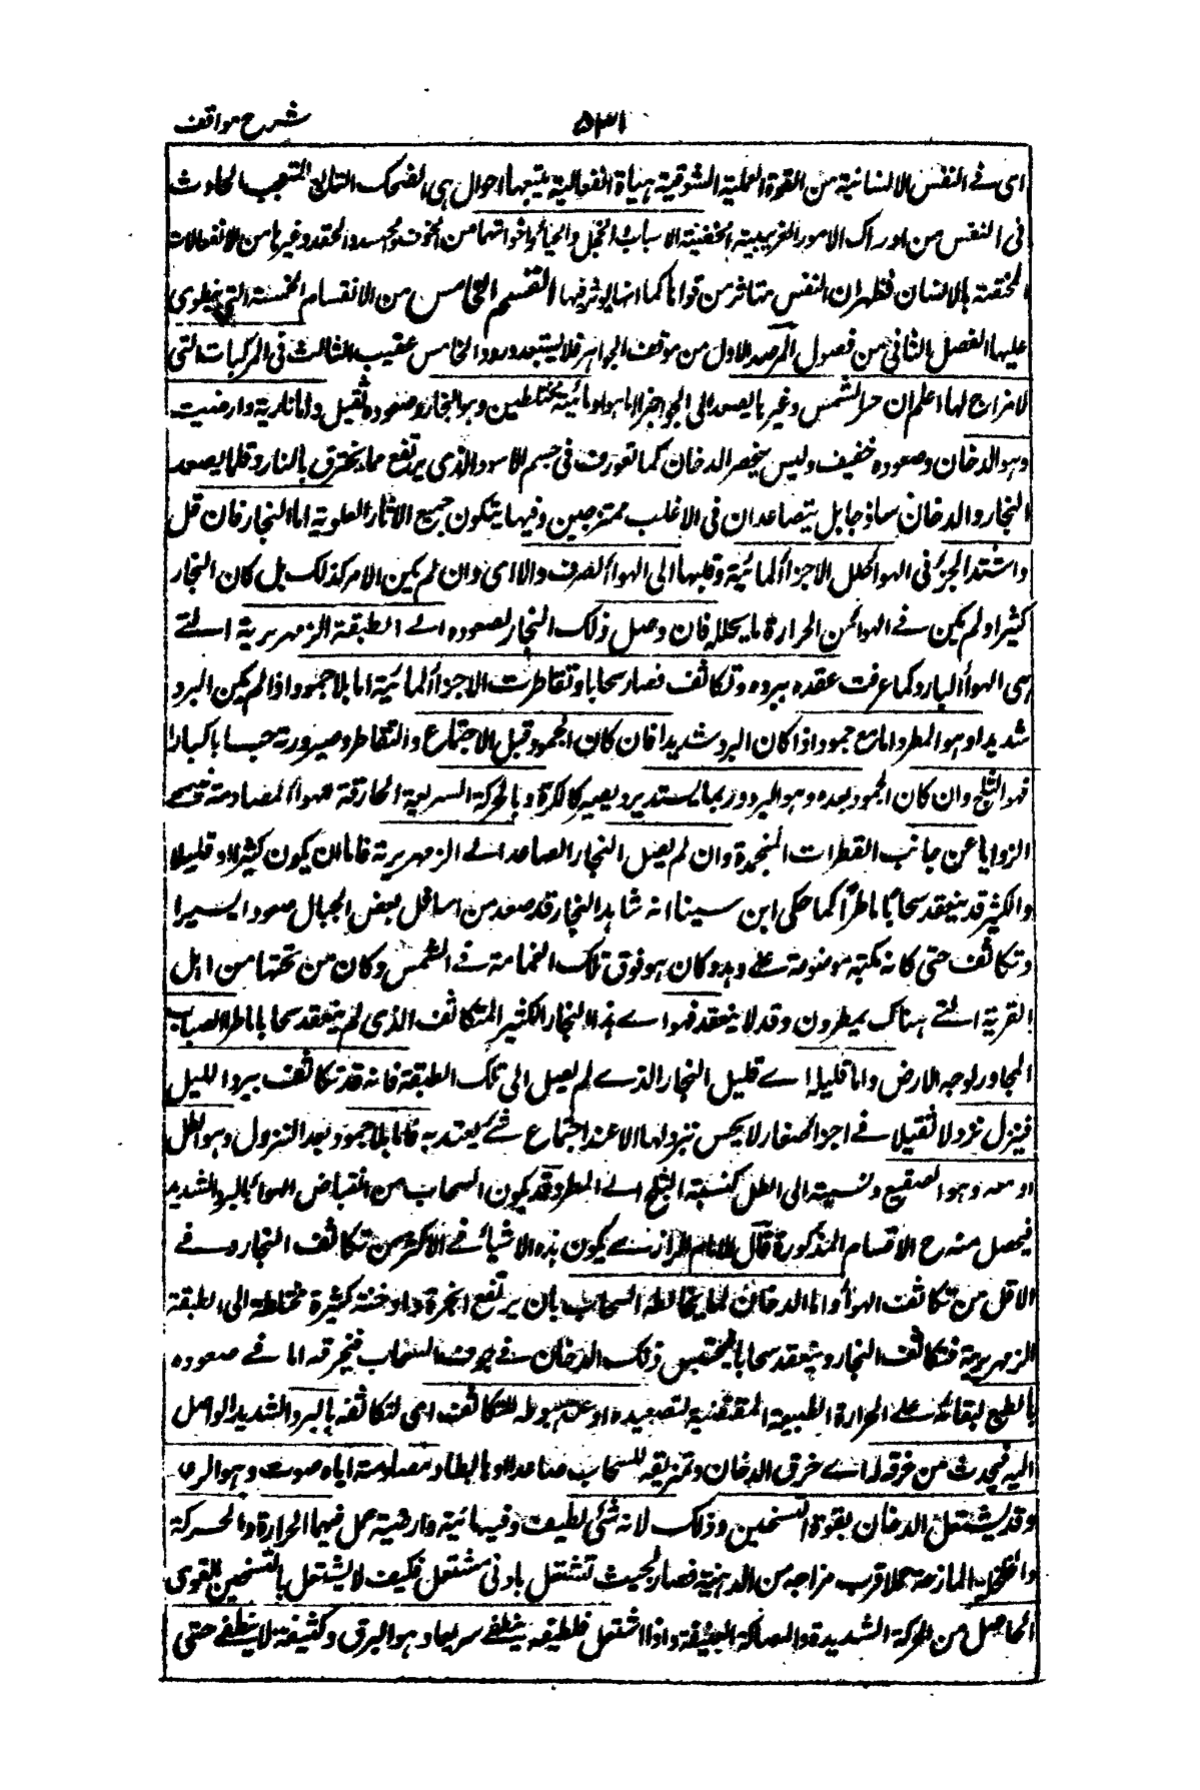 ۵۳۱ شرح مواقف
اى فى النفس الانسانية من القوة العملية الشوقية هياة انفعالية يتبعها احوال هى الضحك التابع للتعجب الحادث
فى النفس من ادراك الامور الغريبية الخفية الاسباب والخجل والحياء واخواتهما من الخوف والحسد والحقد وغيرها من الانفعالات
المختصة بالانسان فظهر ان النفس متاثر من قواها كما انها يوثر فيها القسم الخامس من الانقسام الخمسة التى ينطوى
عليها الفصل الثانى من فصول المرصد الاول من موقف الجواهر فلا يستبعد ورود الخامس عقيب الثالث فى المركبات التى
لا مزاج لها اعلم ان حر الشمس وغيرها يصعد الى الجو اجزاء اما هوائية ومائية مختلطين وهو البخار وصعوده ثقيل واما نارية وارضية
وهو الدخان وصعوده خفيف وليس ينحصر الدخان كما تعورف فى جسم الاسود الذى يرتفع مما يحترق بالنار وقلما يصعد
البخار والدخان ساذجا بل يتصاعدان فى الاغلب ممتزجين وفيها يتكون جميع الآثار العلوية اما البخار فان قل
واشتد الحر فى الهواء حلل الاجزاء المائية وقلبها الى الهواء الصرف والا اى وان لم يكن الامر كذلك بل كان البخار
كثيرا ولم يكن فى الهواء من الحرارة ما يحلله فان وصل ذلك البخار لصعوده الى الطبقة الزمهريرية التى
هى الهواء البارد كما عرفت عقده ببرده وتكاثف فصار سحابا وتقاطرت الاجزاء المائية اما بلا جمود اذا لم يكن البرد
شديدا وهو المطر واما مع جمود اذا كان البرد شديدا فان كان الجمود قبل الاجتماع والتقاطر وصيرورته حبابا كبارا
فهو الثلج وان كان الجمود بعده وهو البرد وربما يستدير ويصير كالكرة وبالحركة السريعة الخارقة للهواء المصادمة فتنمحى
الزوايا عن جانب القطرات المنجمدة وان لم يصل البخار الصاعد الى الزمهريرية فاما ان يكون كثيرا او قليلا
والكثير قد ينعقد سحابا ماطرا كما حكى ابن سينا انه شاهد البخار قد صعد من اسافل بعض الجبال صعودا يسيرا
وتكاثف حتى كانه مكبة موضوعة على وهدة وكان هو فوق تلك الغمامة فى الشمس وكان من تحتها من اهل
القرية التى هناك يمطرون وقد لا ينعقد فهو اى هذا البخار الكثير المتكاثف الذى لم ينعقد سحابا ماطرا الضباب
المجاور لوجه الارض واما قليله اى قليل البخار الذى لم يصل الى تلك الطبقة فانه قد تكاثف ببرد الليل
فينزل نزولا ثقيلا فى اجزاء صغار لا يحس بنزولها الا عند اجتماع شئ يعتد به فاما بلا جمود بعد النزول وهو الطل
او معه وهو الصقيع ونسبته الى الطل كنسبة الثلج الى المطر وقد يكون السحاب من انقباض الهواء بالبرد الشديد
فيحصل منه ح الاقسام المذكورة قال الامام الرازى يكون هذه الاشياء فى الاكثر من تكاثف البخار وفى
الاقل من تكاثف الهواء واما الدخان فربما يخالط السحاب بان يرتفع ابخرة وادخنة كثيرة مختلطة الى الطبقة
الزمهريرية فتكاثف البخار وينعقد سحابا فيحتبس ذلك الدخان فى جوف السحاب فيخرقه اما فى صعوده
بالطبع لبقائه على الحرارة الطبيعية المقتضية لتصعيده او عند هبوطه للتكاثف اى لتكاثفه بالبرد الشديد الواصل
اليه فيحدث من خرقه له اى خرق الدخان وتمزيقه للسحاب صاعدا او هابطا ومصادمته اياه صوت وهو الرعد
وقد يشتعل الدخان بقوة التسخين وذلك لانه شئ لطيف وفيه مائية وارضية عمل فيهما الحرارة والحركة
والخلخلة المازجة عملا قرب مزاجه من الدهنية فصار بحيث تشتعل بادنى مشتعل فكيف لا يشتعل بالتسخين القوى
الحاصل من الحركة الشديدة والمصاكة العنيفة واذا اشتعل فلطيفه ينطفى سريعا وهو البرق وكثيفه لا ينطفى حتى